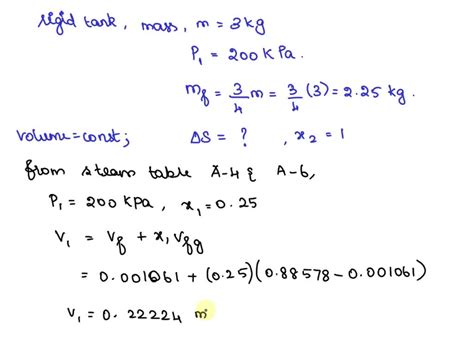 rigid tank, mass, m = 3 kg
P₁ = 200 KPa.
m_f = 3/4 m = 3/4 (3) = 2.25 kg.
volume = const; ΔS = ? , x₂ = 1
from steam table A-4 & A-6,
P₁ = 200 kPa, x₁ = 0.25
V₁ = V_f + x₁ V_fg
= 0.001061 + (0.25)(0.88578 - 0.001061)
V₁ = 0.22224 m